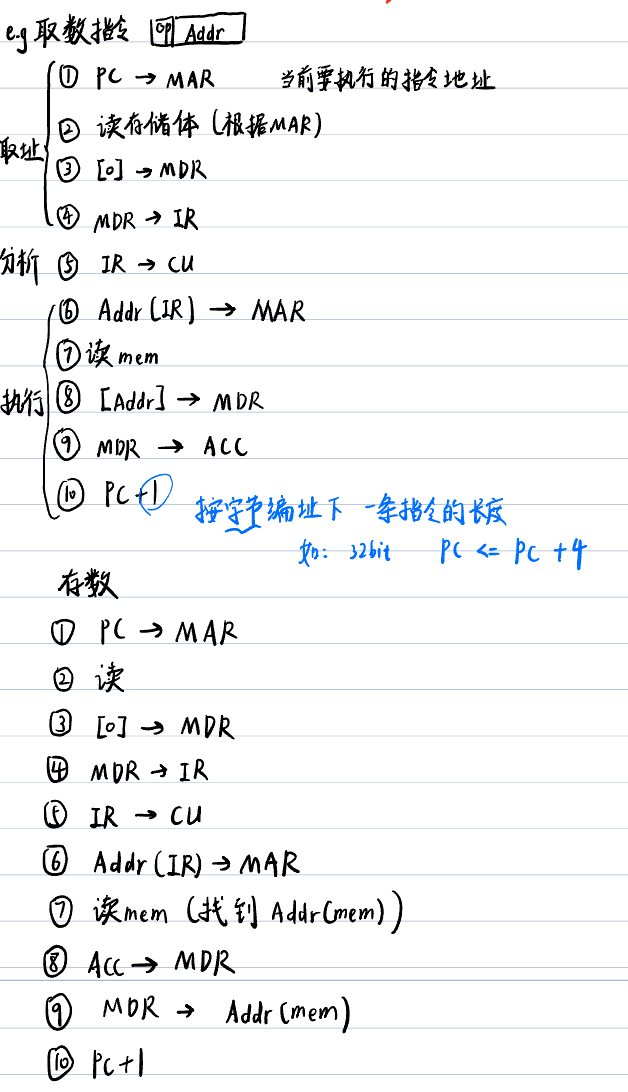 e.g 取数指令 OP Addr
① PC → MAR 当前要执行的指令地址
② 读存储体 (根据MAR)
取址
③ [0] → MDR
④ MDR → IR
分析 ⑤ IR → CU
⑥ Addr [IR] → MAR
⑦ 读mem
执行 ⑧ [Addr] → MDR
⑨ MDR → ACC
⑩ PC+1 按字节编址下 一条指令的长度
如: 32bit PC <= PC +4
存数
① PC → MAR
② 读
③ [0] → MDR
④ MDR → IR
⑤ IR → CU
⑥ Addr (IR) → MAR
⑦ 读mem (找到 Addr(mem))
⑧ ACC → MDR
⑨ MDR → Addr (mem)
⑩ PC+1